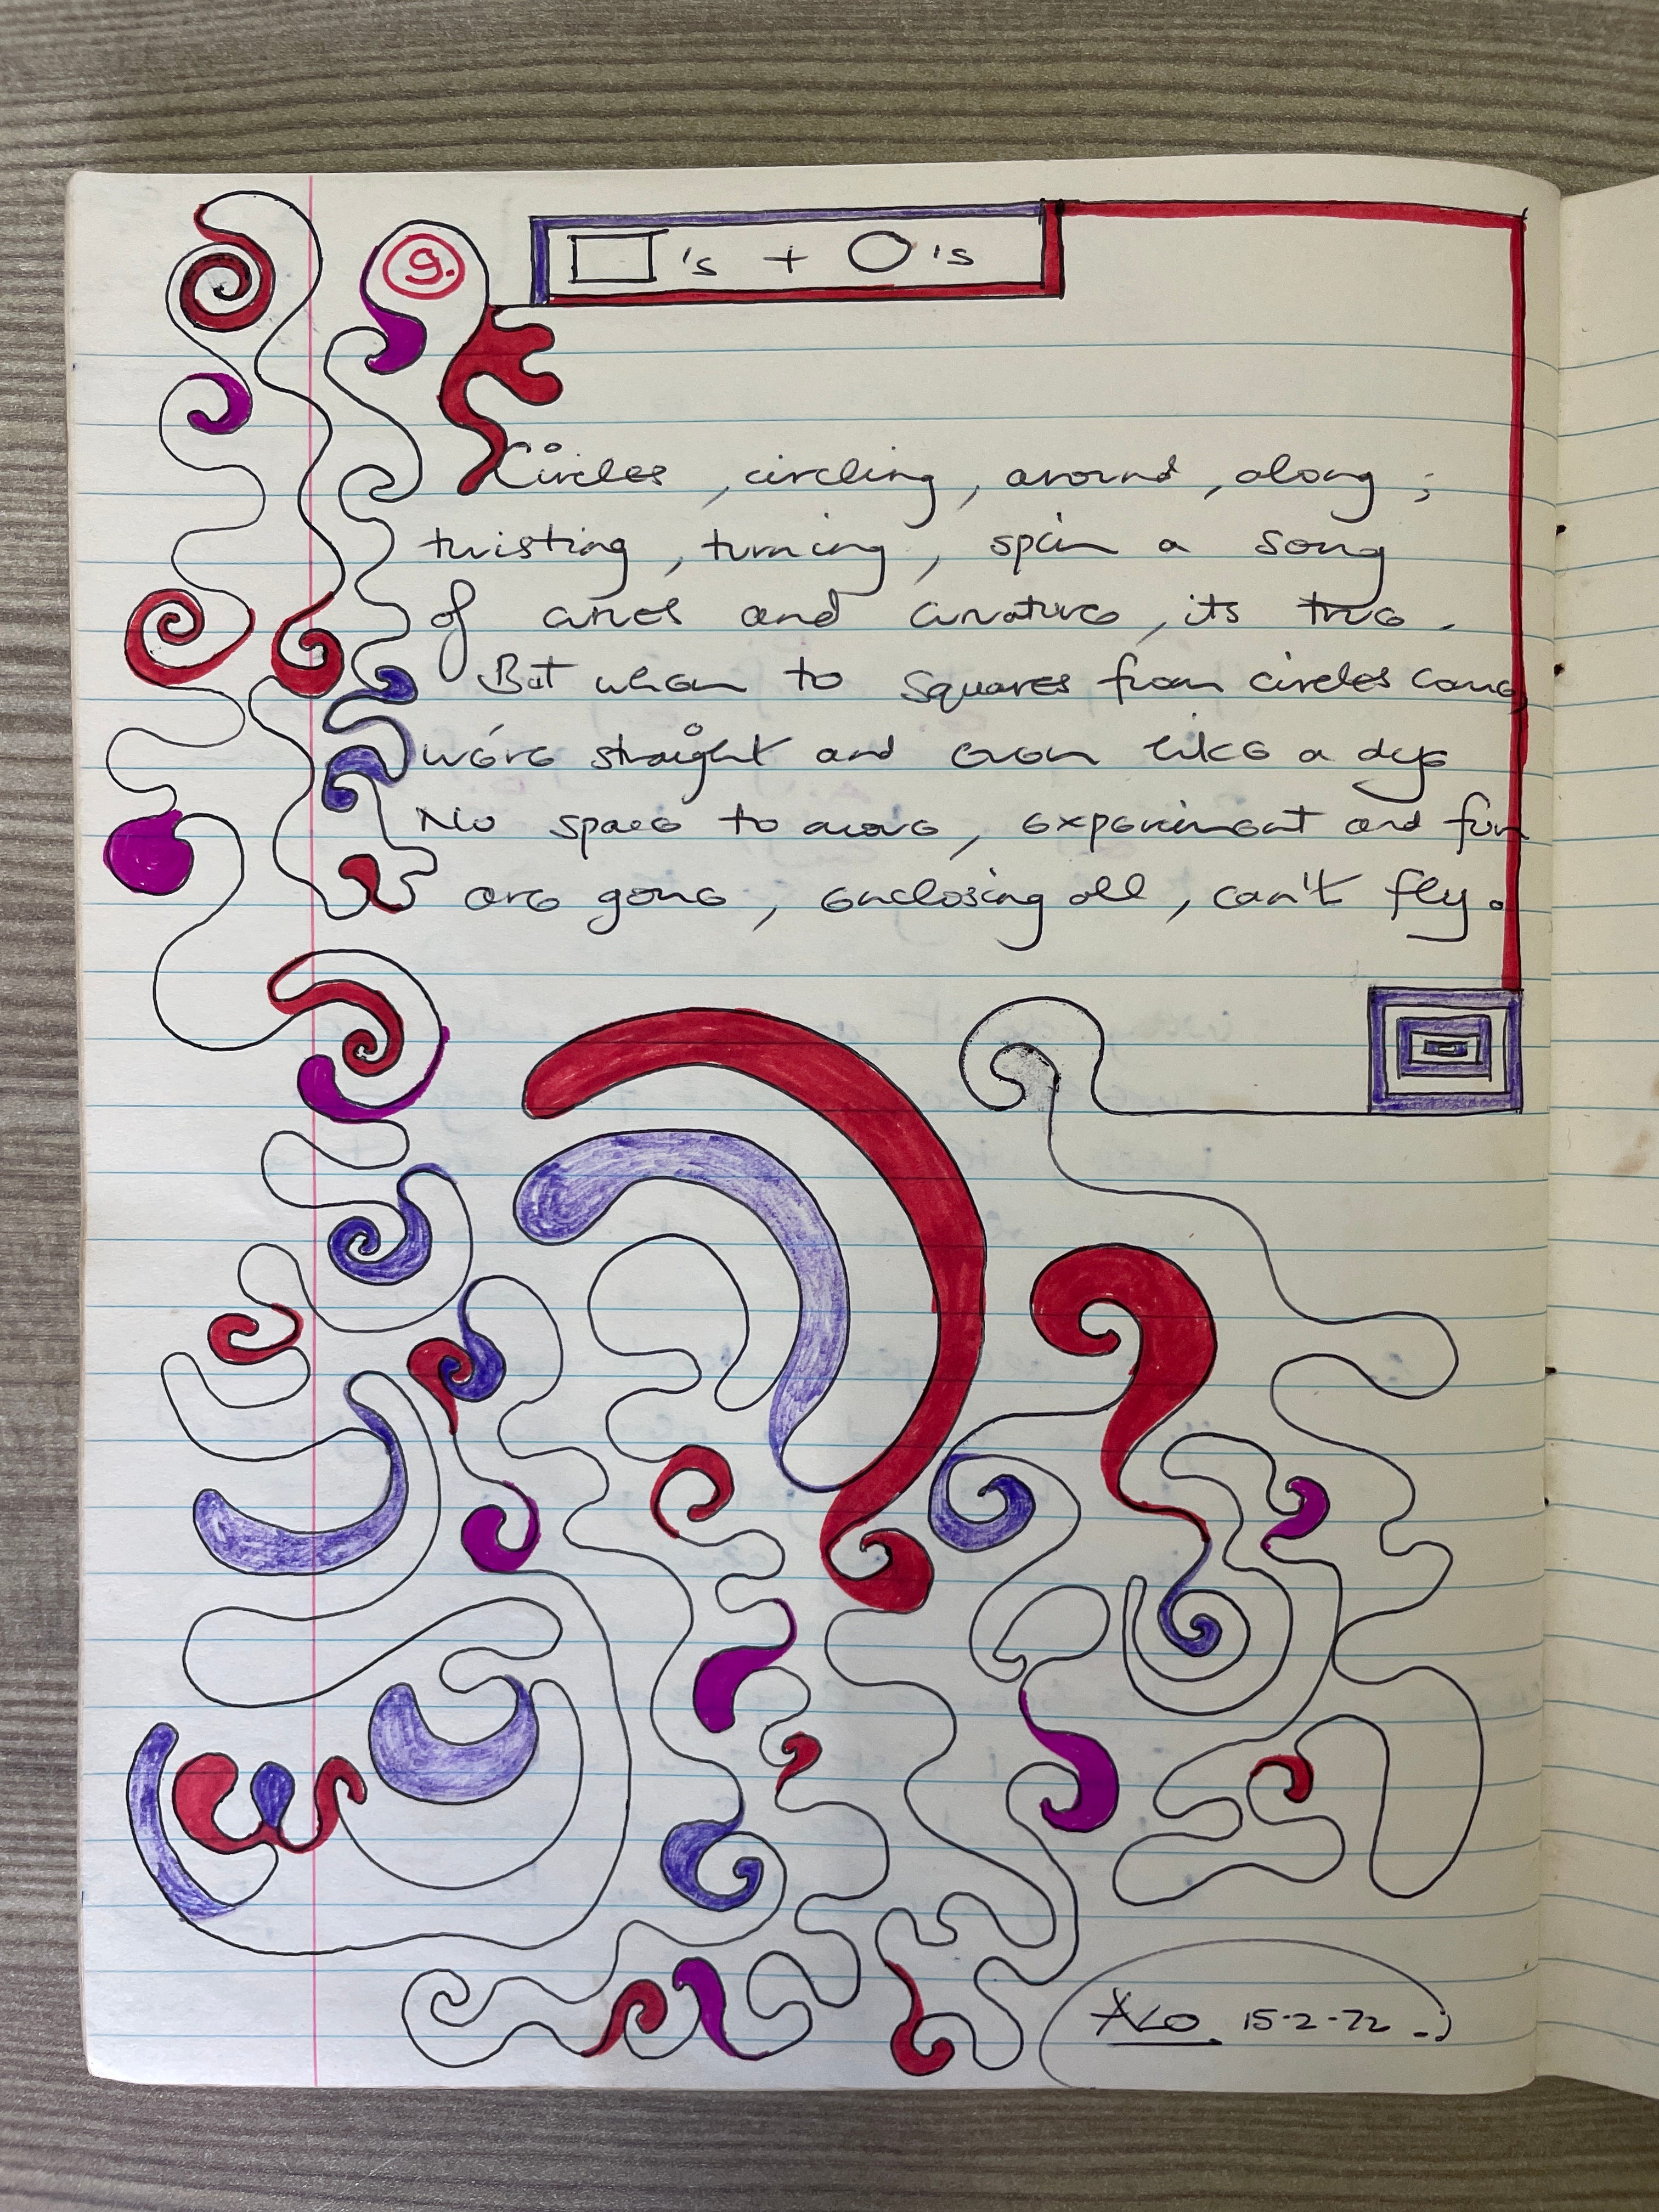 9.
□'s + O's
Circles, circling, around, along;
twisting, turning, spin a song
of and curvature, its true.
But when to squares from circles come,
we're straight and even like a
No space to move, experiment and fun
are gone, enclosing all, can't fly.
15-2-72